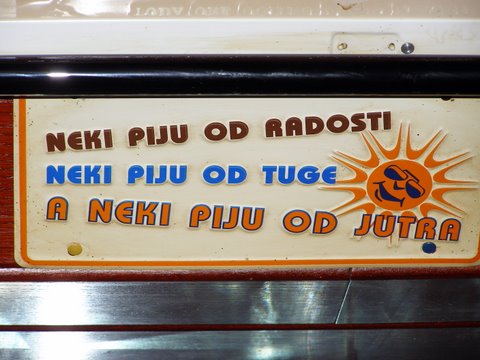 NEKI PIJU OD RADOSTI
NEKI PIJU OD TUGE
A NEKI PIJU OD JUTRA